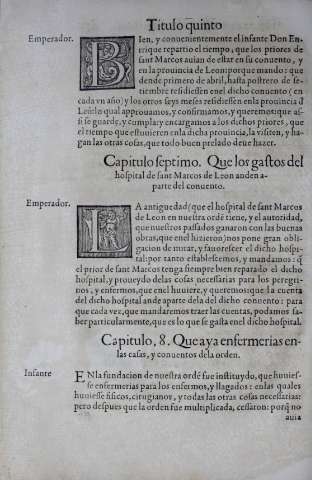 Titulo quinto
Emperador.
BIen, y conuenientemente el infante Don En-
rrique repartio el tiempo, que los priores de
sant Marcos auian de estar en su conuento, y
en la prouincia de Leon: porque mando: que
dende primero de abril, hasta postrero de se-
tiembre residiessen enel dicho conuento (en
cada vn año) y los otros seys meses residiessen enla prouincia d
Leõ: lo qual approuamos, y confirmamos, y queremos que assi
se guarde, y cumpla: y encargamos a los dichos priores, que
el tiempo que estuuieren enla dicha prouincia, la visiten, y ha-
gan las otras cosas, que todo buen prelado deue hazer.
Capitulo septimo. Que los gastos del
hospital de sant Marcos de Leon anden a-
parte del conuento.
Emperador.
LA antiguedad (que el hospital de sant Marcos
de Leon en nuestra ordē tiene, y el autoridad,
que nuestros passados ganaron con las buenas
obras, que enel hizieron) nos pone gran obli-
gacion de mirar, y fauorescer el dicho hospi-
tal: por tanto establescemos, y mandamos: q̃
el prior de sant Marcos tenga siempre bien reparado el dicho
hospital, y proueydo delas cosas necessarias para los peregri-
nos, y enfermos, que enel huuiere, y queremos que la cuenta
del dicho hospital ande aparte dela del dicho conuento: para
que cada vez, que mandaremos traer las cuentas, podamos sa-
ber particularmente, que es lo que se gasta enel dicho hospital.
Capitulo, 8. Que aya enfermerias en-
las casas, y conuentos dela orden.
Infante
ENla fundacion de nuestra ordē fue instituydo, que huuies-
se enfermerias para los enfermos, y llagados: enlas quales
huuiesse fisicos, cirugianos, y todas las otras cosas necessarias:
pero despues que la orden fue multiplicada, cessaron: porq̃ no
auia